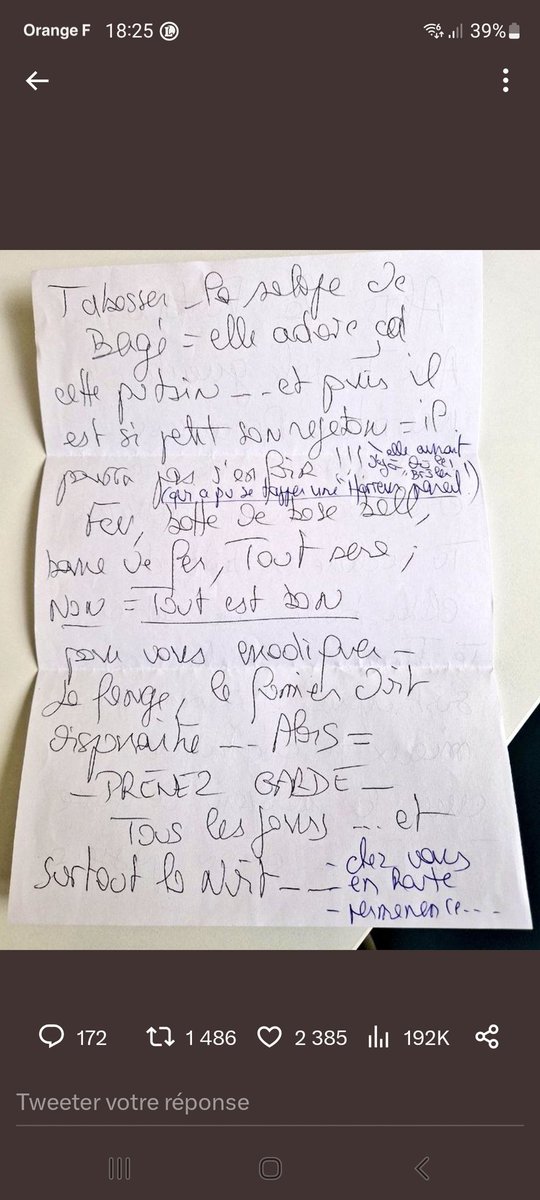 Orange F 18:25 39%
Tabasser la salope de
Bagé = elle adore ça
cette putain --- et puis il
est si petit son rejeton = il
pourra pas s'en
elle aurait
(qui a pu se tapper une Horreur pareil!)
Fer, batte de base ball,
barre de fer, Tout sera ;
Non = Tout est bon
pour vous éradiquer –
La fange, le fumier doit
disparaitre --- Alors =
– PRENEZ GARDE –
Tous les jours ... et
surtout la Nuit – –
- chez vous
- en Route
- permanence...
172 1 486 2 385 192K
Tweeter votre réponse